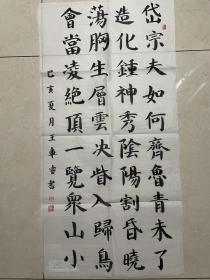 岱宗夫如何齊魯青未了
造化鍾神秀陰陽割昏曉
蕩胸生層雲決眥入歸鳥
會當凌絕頂一覽衆山小
己亥夏月王車雷書